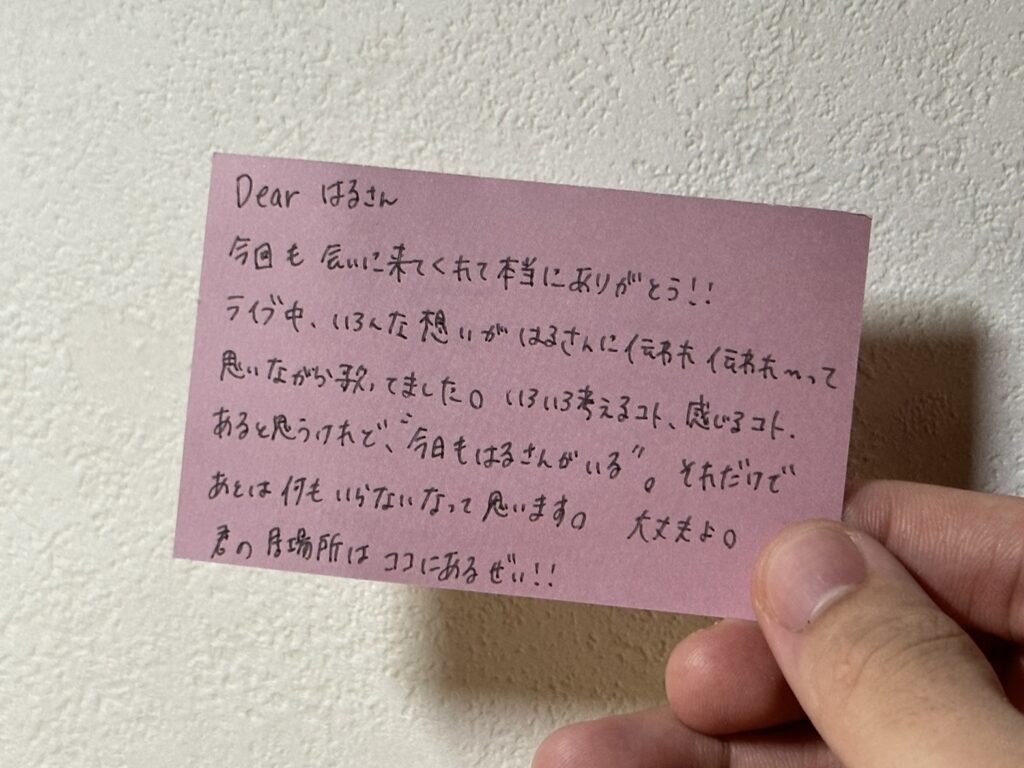 Dear はるさん
今回も 会いに来てくれて本当にありがとう!!
ライブ中、いろんな想いがはるさんに伝われ伝われ〜って
思いながら歌ってました。いろいろ考えるコト、感じるコト、
あると思うけれど、“今日もはるさんがいる”。それだけで
あとは何もいらないなって思います。 大丈夫よ。
君の居場所はココにあるぜぃ!!